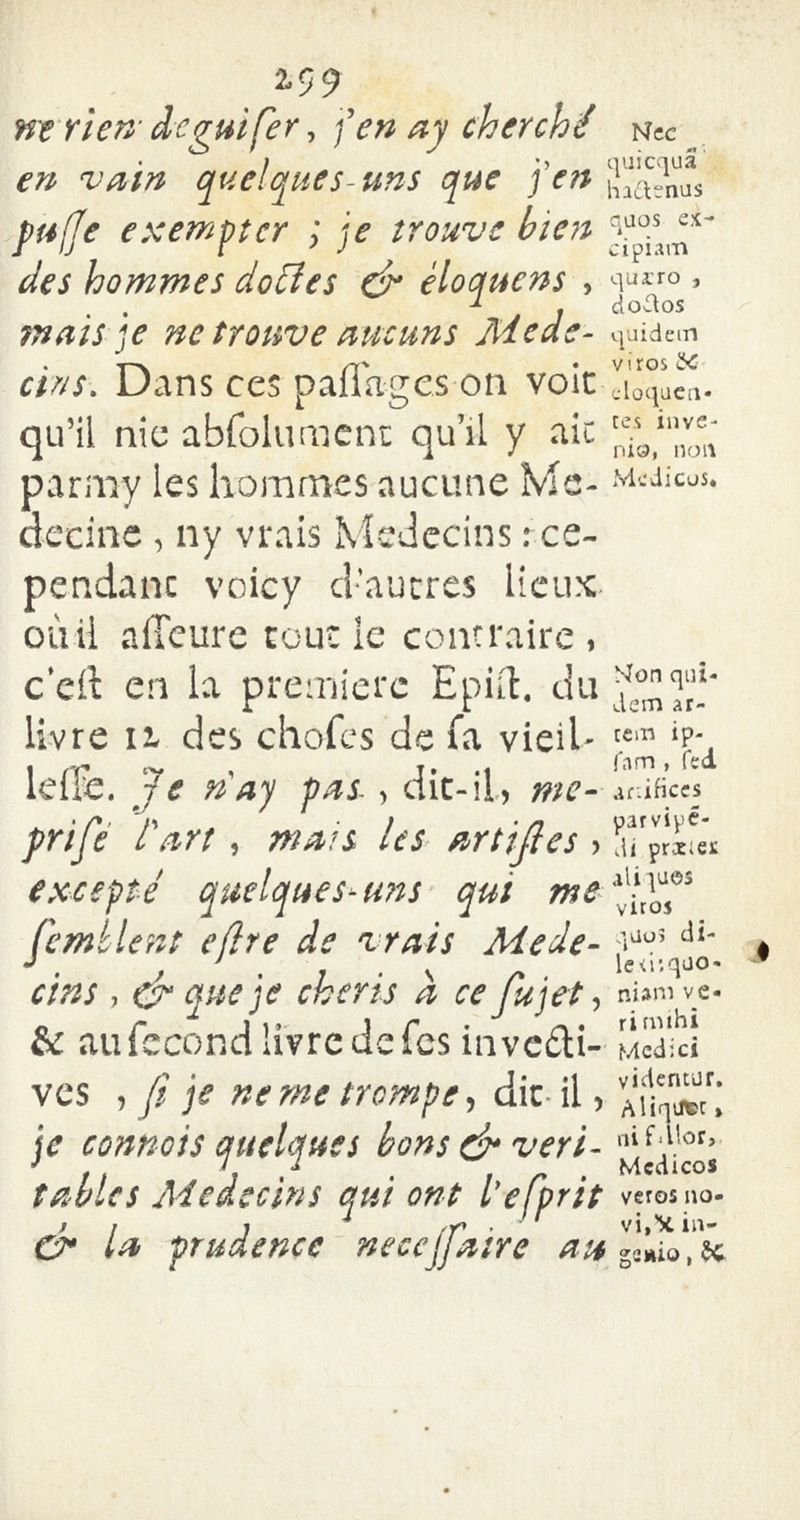 299
ne rien deguiſer, j'en ay cherché
en vain quelques-uns que j'en
puſſe exempter ; je trouve bien
des hommes doctes & éloquens ,
mais je ne trouve aucuns Mede-
cins. Dans ces paſſages on voit
qu'il nie abſolument qu'il y ait
parmy les hommes aucune Me-
decine , ny vrais Medecins : ce-
pendant voicy d'autres lieux
où il aſſeure tout le contraire ,
c'eſt en la premiere Epiſt. du
livre 12 des choſes de ſa vieil-
leſſe. Je n'ay pas , dit-il, mé-
priſé l'art , mais les artiſtes ,
excepté quelques-uns qui me
ſemblent eſtre de vrais Mede-
cins , & que je cheris à ce ſujet,
& au ſecond livre de ſes invecti-
ves , ſi je ne me trompe, dit-il ,
je connois quelques bons & veri-
tables Medecins qui ont l'eſprit
& la prudence neceſſaire au
Nec
quicquã
hactenus
quos ex-
cipiam
quæro ,
doctos
quidem
viros &
eloquen-
tes inve-
nio, non
Medicos.
Non qui-
dem ar-
tem ip-
ſam , ſed
artifices
parvipē-
di præter
aliquos
viros
quos di-
lexi, quo-
niam ve-
ri mihi
Medici
videntur.
Aliquot ,
ni fallor,
Medicos
veros no-
vi, & in-
genio, &